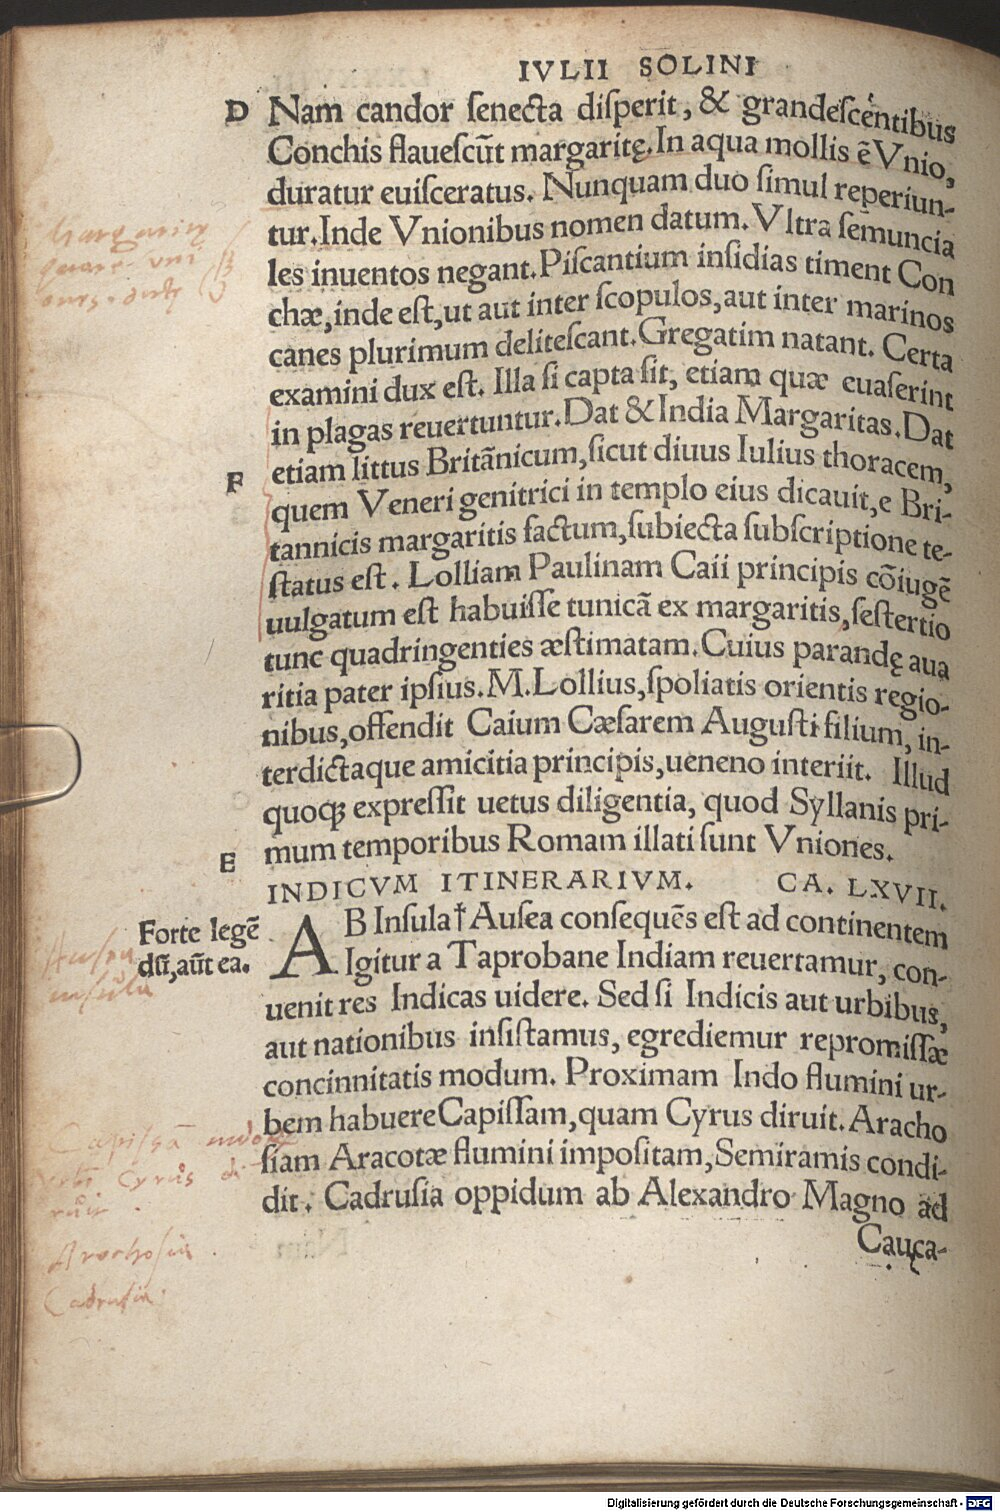 IVLII SOLINI
D Nam candor ſenecta diſperit, & grandeſcẽntibus
Conchis flaueſcũt margaritę. In aqua mollis ẽ Vnio,
duratur euiſceratus. Nunquam duo ſimul reperiun-
tur. Inde Vnionibus nomen datum. Vltra ſẽmuncia
les inuentos negant. Piſcantium inſidias timent Con
chæ, inde eſt, ut aut inter ſcopulos, aut inter marinos
canes plurimum deliteſcant. Gregatim natant. Certa
examini dux eſt. Illa ſi capta ſit, etiam quæ euaſerint
in plagas reuertuntur. Dat & India Margaritas. Dat
etiam littus Britãnicum, ſicut diuus Iulius thoracem,
F quem Veneri genitrici in templo eius dicauit, e Bri-
tannicis margaritis factum, ſubiecta ſubſcriptione te-
ſtatus eſt. Lolliam Paulinam Caii principis cõiugẽ
uulgatum eſt habuiſſe tunicã ex margaritis, ſeſtertio
tunc quadringenties æſtimatam. Cuius parandę aua
ritia pater ipſius. M. Lollius, ſpoliatis orientis regio-
nibus, offendit Caium Cæſarem Auguſti filium, in-
terdictaque amicitia principis, ueneno interiit. Illud
quoqꝫ expreſſit uetus diligentia, quod Syllanis pri-
E mum temporibus Romam illati ſunt Vniones.
INDICVM ITINERARIVM. CA. LXVII.
AB Inſula † Auſea conſequẽs eſt ad continentem
Igitur a Taprobane Indiam reuertamur, con-
uenit res Indicas uidere. Sed ſi Indicis aut urbibus,
aut nationibus inſiſtamus, egrediemur repromiſſæ
concinnitatis modum. Proximam Indo flumini ur-
bem habuere Capiſſam, quam Cyrus diruit. Aracho
ſiam Aracotæ flumini impoſitam, Semiramis condi-
dit. Cadruſia oppidum ab Alexandro Magno ad
Cauca-
Forte legẽ
dũ, aũt ea.
Margaritę
quare vni
ones dictę
Auſea
inſula
Capiſsã
Cyrus di
ruit
Arochoſia
Cadruſia
Digitalisierung gefördert durch die Deutsche Forschungsgemeinschaft - DFG